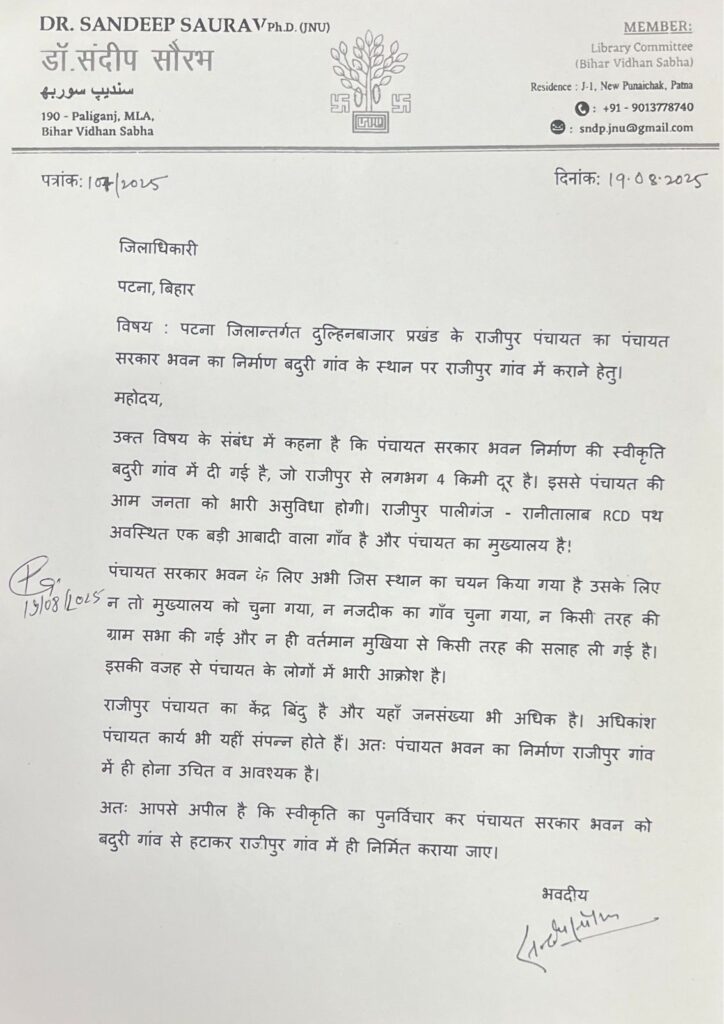 DR. SANDEEP SAURAV Ph.D. (JNU)
डॉ.संदीप सौरभ
سندیپ سوربھ
190 - Paliganj, MLA,
Bihar Vidhan Sabha
MEMBER:
Library Committee
(Bihar Vidhan Sabha)
Residence : J-1, New Punaichak, Patna
: +91 - 9013778740
: sndp.jnu@gmail.com
पत्रांक: 107/2025
दिनांक: 19.08.2025
जिलाधिकारी
पटना, बिहार
विषय : पटना जिलान्तर्गत दुल्हिनबाजार प्रखंड के राजीपुर पंचायत का पंचायत
सरकार भवन का निर्माण बदुरी गांव के स्थान पर राजीपुर गांव में कराने हेतु।
महोदय,
उक्त विषय के संबंध में कहना है कि पंचायत सरकार भवन निर्माण की स्वीकृति
बदुरी गांव में दी गई है, जो राजीपुर से लगभग 4 किमी दूर है। इससे पंचायत की
आम जनता को भारी असुविधा होगी। राजीपुर पालीगंज - रानीतालाब RCD पथ
अवस्थित एक बड़ी आबादी वाला गाँव है और पंचायत का मुख्यालय है!
पंचायत सरकार भवन के लिए अभी जिस स्थान का चयन किया गया है उसके लिए
न तो मुख्यालय को चुना गया, न नजदीक का गाँव चुना गया, न किसी तरह की
ग्राम सभा की गई और न ही वर्तमान मुखिया से किसी तरह की सलाह ली गई है।
इसकी वजह से पंचायत के लोगों में भारी आक्रोश है।
19/08/2025
राजीपुर पंचायत का केंद्र बिंदु है और यहाँ जनसंख्या भी अधिक है। अधिकांश
पंचायत कार्य भी यहीं संपन्न होते हैं। अतः पंचायत भवन का निर्माण राजीपुर गांव
में ही होना उचित व आवश्यक है।
अतः आपसे अपील है कि स्वीकृति का पुनर्विचार कर पंचायत सरकार भवन को
बदुरी गांव से हटाकर राजीपुर गांव में ही निर्मित कराया जाए।
भवदीय